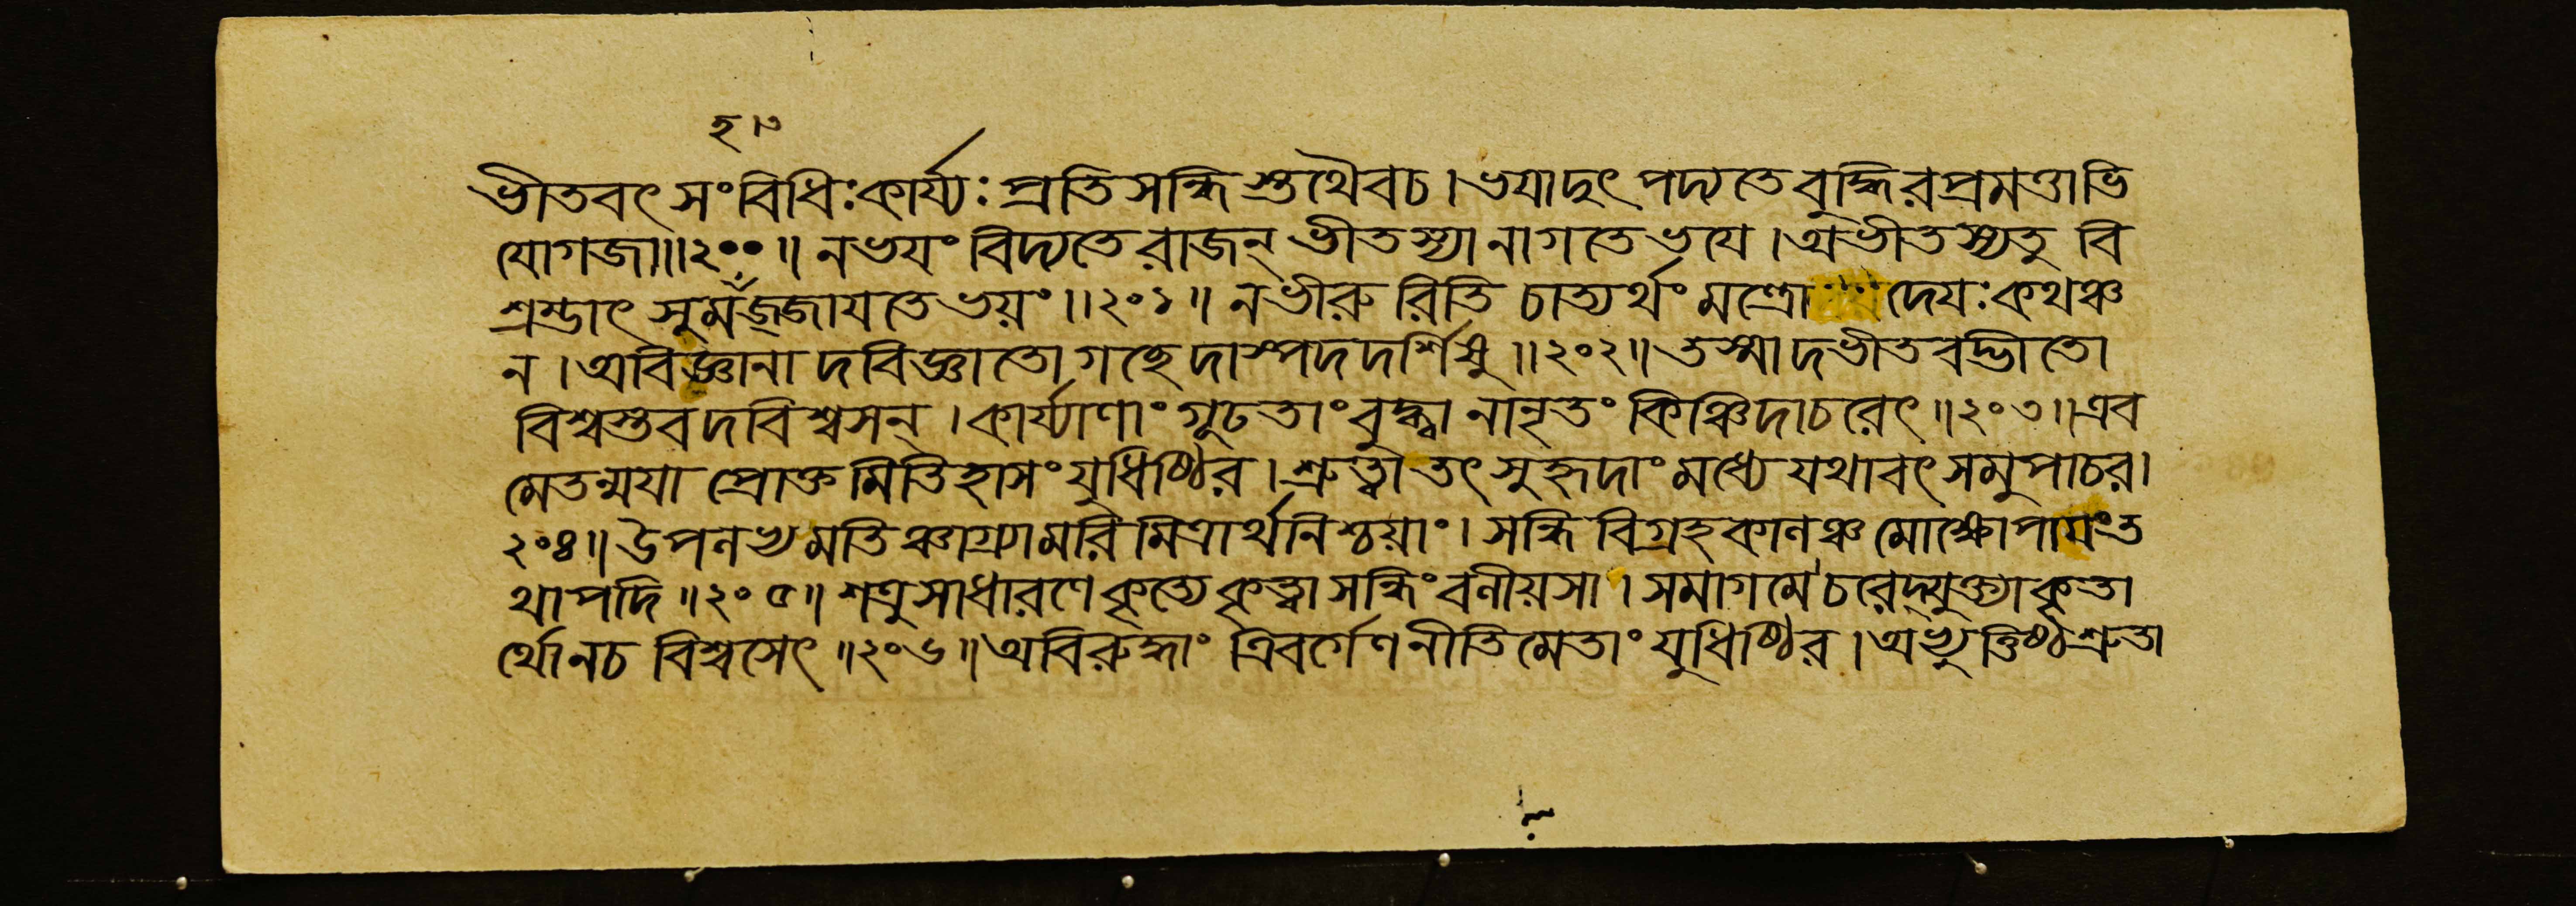 হ ৷৩
ভীতবৎ সংবিধিঃ কার্য্যঃ প্রতিসন্ধিস্তথৈবচ । ভযাদুৎপদ্যতে বুদ্ধিরপ্রমত্তাভি
যোগজা ॥ ২০০ ॥ নভযং বিদ্যতে রাজন্ ভীতস্যানাগতে ভযে । অভীতস্যতু বি
শ্রম্ভাৎ সুমহজ্জাযতে ভয়ং ॥ ২০১ ॥ নভীরু রিতি চাত্যর্থং মন্ত্রো দেযঃ কথঞ্চ
ন । অবিজ্ঞানাদবিজ্ঞাতো গচ্ছেদাস্পদদর্শিষু ॥ ২০২ ॥ তস্মাদভীতবদ্ভীতো
বিশ্বস্তবদবিশ্বসন্ । কার্য্যাণাং গূঢতাং বুদ্ধ্বা নানৃতং কিঞ্চিদাচরেৎ ॥ ২০৩ ॥ এব
মেতন্মযা প্রোক্তমিতিহাসং যুধিষ্ঠির । শ্রুত্বা তৎ সুহৃদাং মধ্যে যথাবৎ সমুপাচর ।
২০৪ ॥ উপলভ্য মতিঞ্চাগ্র্যামরিমিত্রার্থনিশ্চয়াং । সন্ধি বিগ্রহকালঞ্চ মোক্ষোপাযংত
থাপদি ॥ ২০৫ ॥ শত্রুসাধারণে কৃত্যে কৃত্বা সন্ধিং বলীয়সা । সমাগমে চরেদ্যুক্ত্যা কৃতা
র্থোনচ বিশ্বসেৎ ॥ ২০৬ ॥ অবিরুদ্ধাং ত্রিবর্গেণ নীতিমেতাং যুধিষ্ঠির । অভ্যুত্তিষ্ঠ শ্রুতা